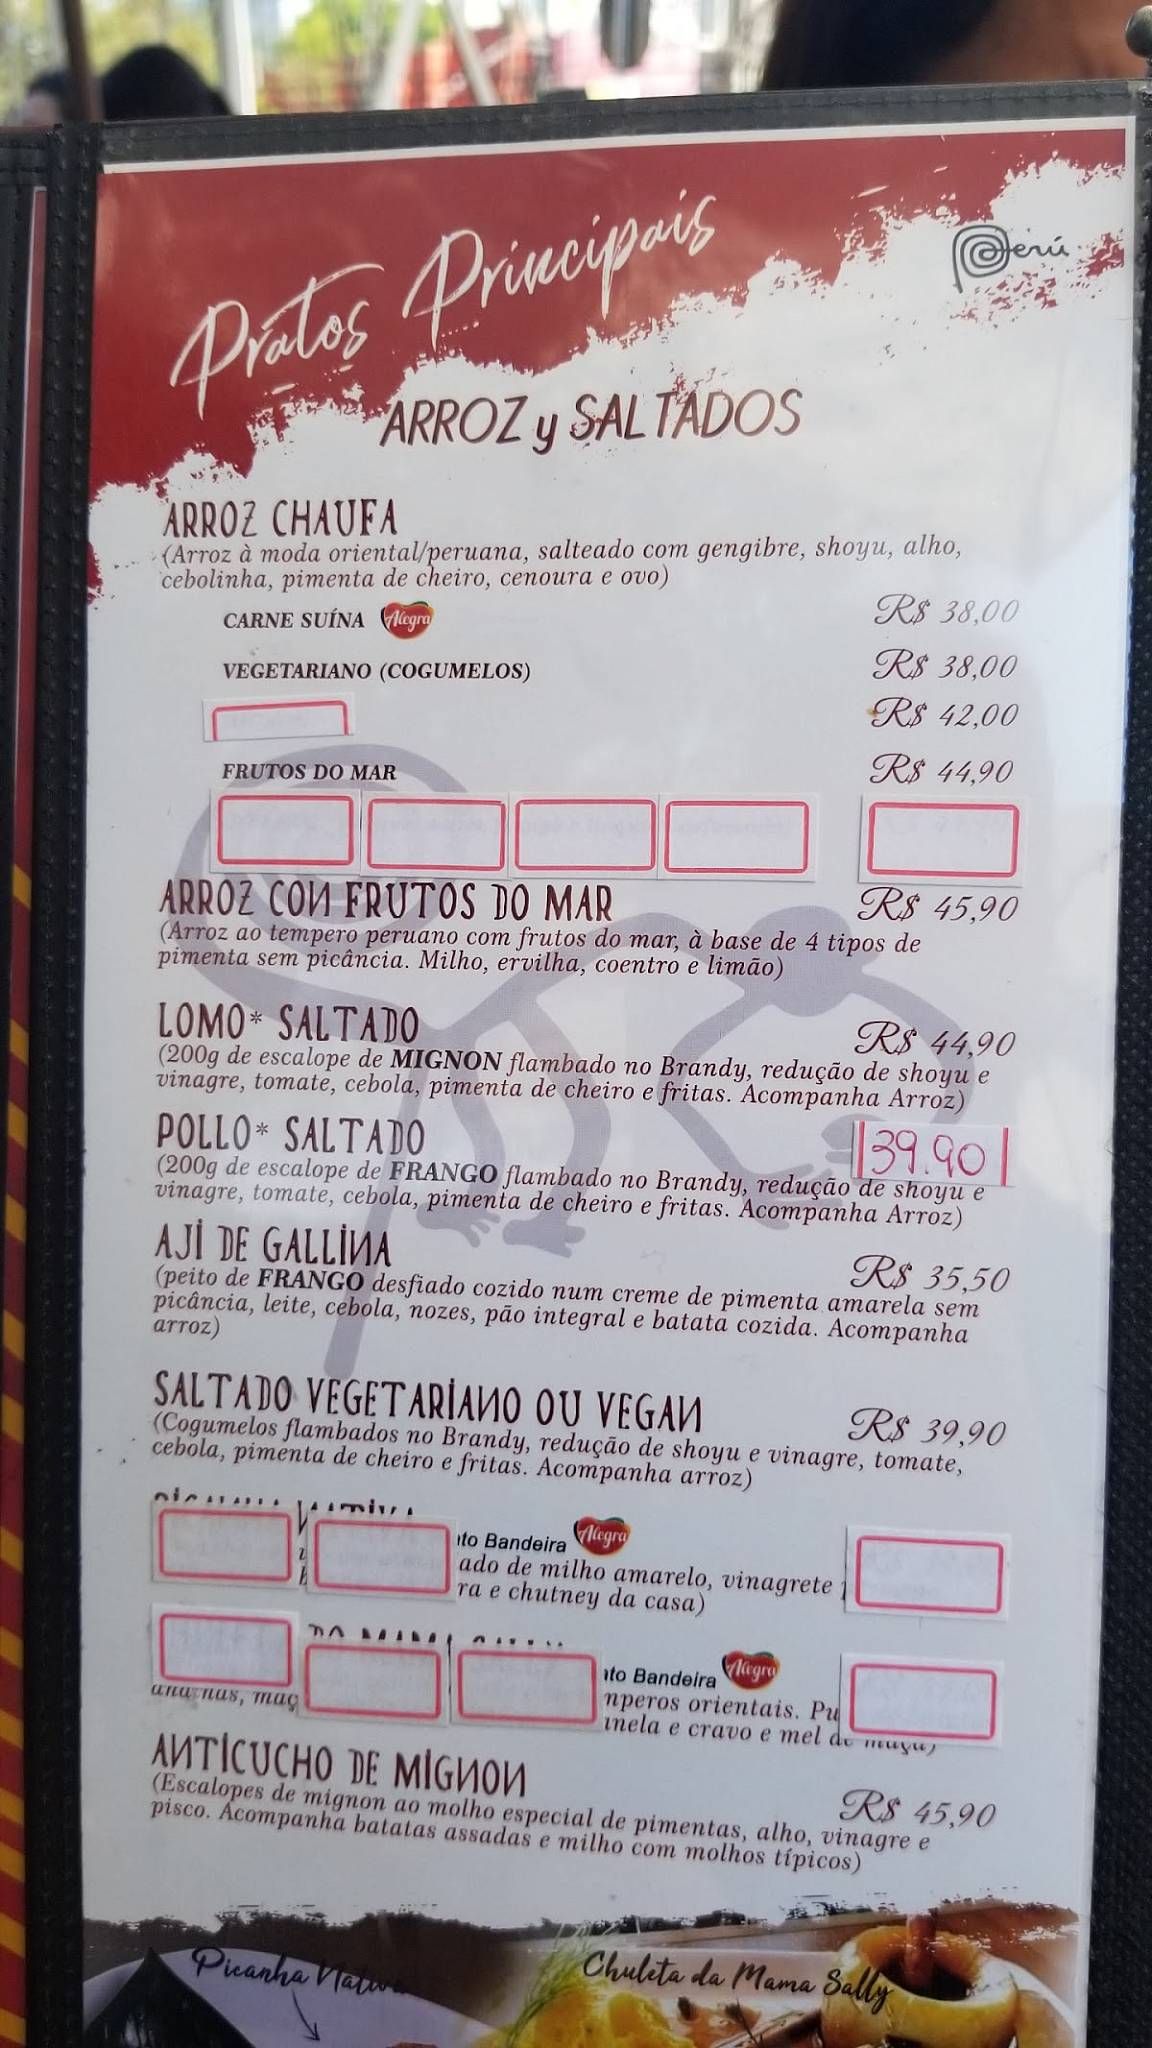 Pratos Principais
Perú
ARROZ y SALTADOS
ARROZ CHAUFA
(Arroz à moda oriental/peruana, salteado com gengibre, shoyu, alho,
cebolinha, pimenta de cheiro, cenoura e ovo)
CARNE SUÍNA Alegra R$ 38,00
VEGETARIANO (COGUMELOS) R$ 38,00
R$ 42,00
FRUTOS DO MAR R$ 44,90
ARROZ CON FRUTOS DO MAR R$ 45,90
(Arroz ao tempero peruano com frutos do mar, à base de 4 tipos de
pimenta sem picância. Milho, ervilha, coentro e limão)
LOMO* SALTADO R$ 44,90
(200g de escalope de MIGNON flambado no Brandy, redução de shoyu e
vinagre, tomate, cebola, pimenta de cheiro e fritas. Acompanha Arroz)
POLLO* SALTADO 39.90
(200g de escalope de FRANGO flambado no Brandy, redução de shoyu e
vinagre, tomate, cebola, pimenta de cheiro e fritas. Acompanha Arroz)
AJI DE GALLINA R$ 35,50
(peito de FRANGO desfiado cozido num creme de pimenta amarela sem
picância, leite, cebola, nozes, pão integral e batata cozida. Acompanha
arroz)
SALTADO VEGETARIANO OU VEGAN R$ 39,90
(Cogumelos flambados no Brandy, redução de shoyu e vinagre, tomate,
cebola, pimenta de cheiro e fritas. Acompanha arroz)
Bandeira Alegra
ado de milho amarelo, vinagrete
ra e chutney da casa)
Bandeira Alegra
mperos orientais. Pu
nela e cravo e mel de maçã)
ANTICUCHO DE MIGNON R$ 45,90
(Escalopes de mignon ao molho especial de pimentas, alho, vinagre e
pisco. Acompanha batatas assadas e milho com molhos típicos)
Picanha Nativa
Chuleta da Mama Sally